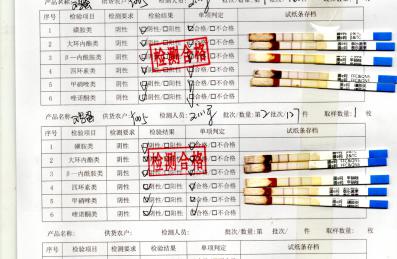 产品名称: 供货农户: 3005 检测人员: 批次/数量:第 批次/ 件 取样数量: 1 枚
序号 检验项目 检测要求 检验结果 单项判定 试纸条存档
1 磺胺类 阴性 ☑阴性/□阳性 ☑合格/□不合格
2 大环内酯类 阴性 ☑阴性/□阳性 ☑合格/□不合格
3 β一内酰胺类 阴性 ☑阴性/□阳性 ☑合格/□不合格
4 四环素类 阴性 ☑阴性/□阳性 ☑合格/□不合格
5 甲硝唑类 阴性 ☑阴性/□阳性 ☑合格/□不合格
6 喹诺酮类 阴性 ☑阴性/□阳性 ☑合格/□不合格
检测合格
产品名称: 供货农户: 3005 检测人员: 批次/数量:第2批次/ 件 取样数量: 1 枚
序号 检验项目 检测要求 检验结果 单项判定 试纸条存档
1 磺胺类 阴性 ☑阴性/□阳性 ☑合格/□不合格
2 大环内酯类 阴性 ☑阴性/□阳性 ☑合格/□不合格
3 β一内酰胺类 阴性 ☑阴性/□阳性 ☑合格/□不合格
4 四环素类 阴性 ☑阴性/□阳性 ☑合格/□不合格
5 甲硝唑类 阴性 ☑阴性/□阳性 ☑合格/□不合格
6 喹诺酮类 阴性 ☑阴性/□阳性 ☑合格/□不合格
检测合格
产品名称: 供货农户: 检测人员: 批次/数量:第 批次/ 件 取样数量: 枚
序号 检验项目 检测要求 检验结果 单项判定 试纸条存档